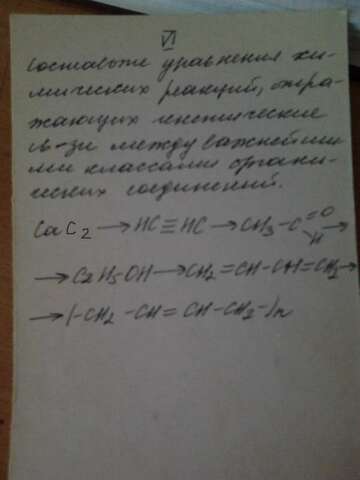 VI
Составьте уравнения хи-
мических реакций, отра-
жающих генетические
св-зи между важнейши
ми классами органи-
ческих соединений.
CaC2 → HC≡HC → CH3-C=O H →
→ C2H5-OH → CH2=CH-CH=CH2 →
→ (-CH2-CH=CH-CH2-)n